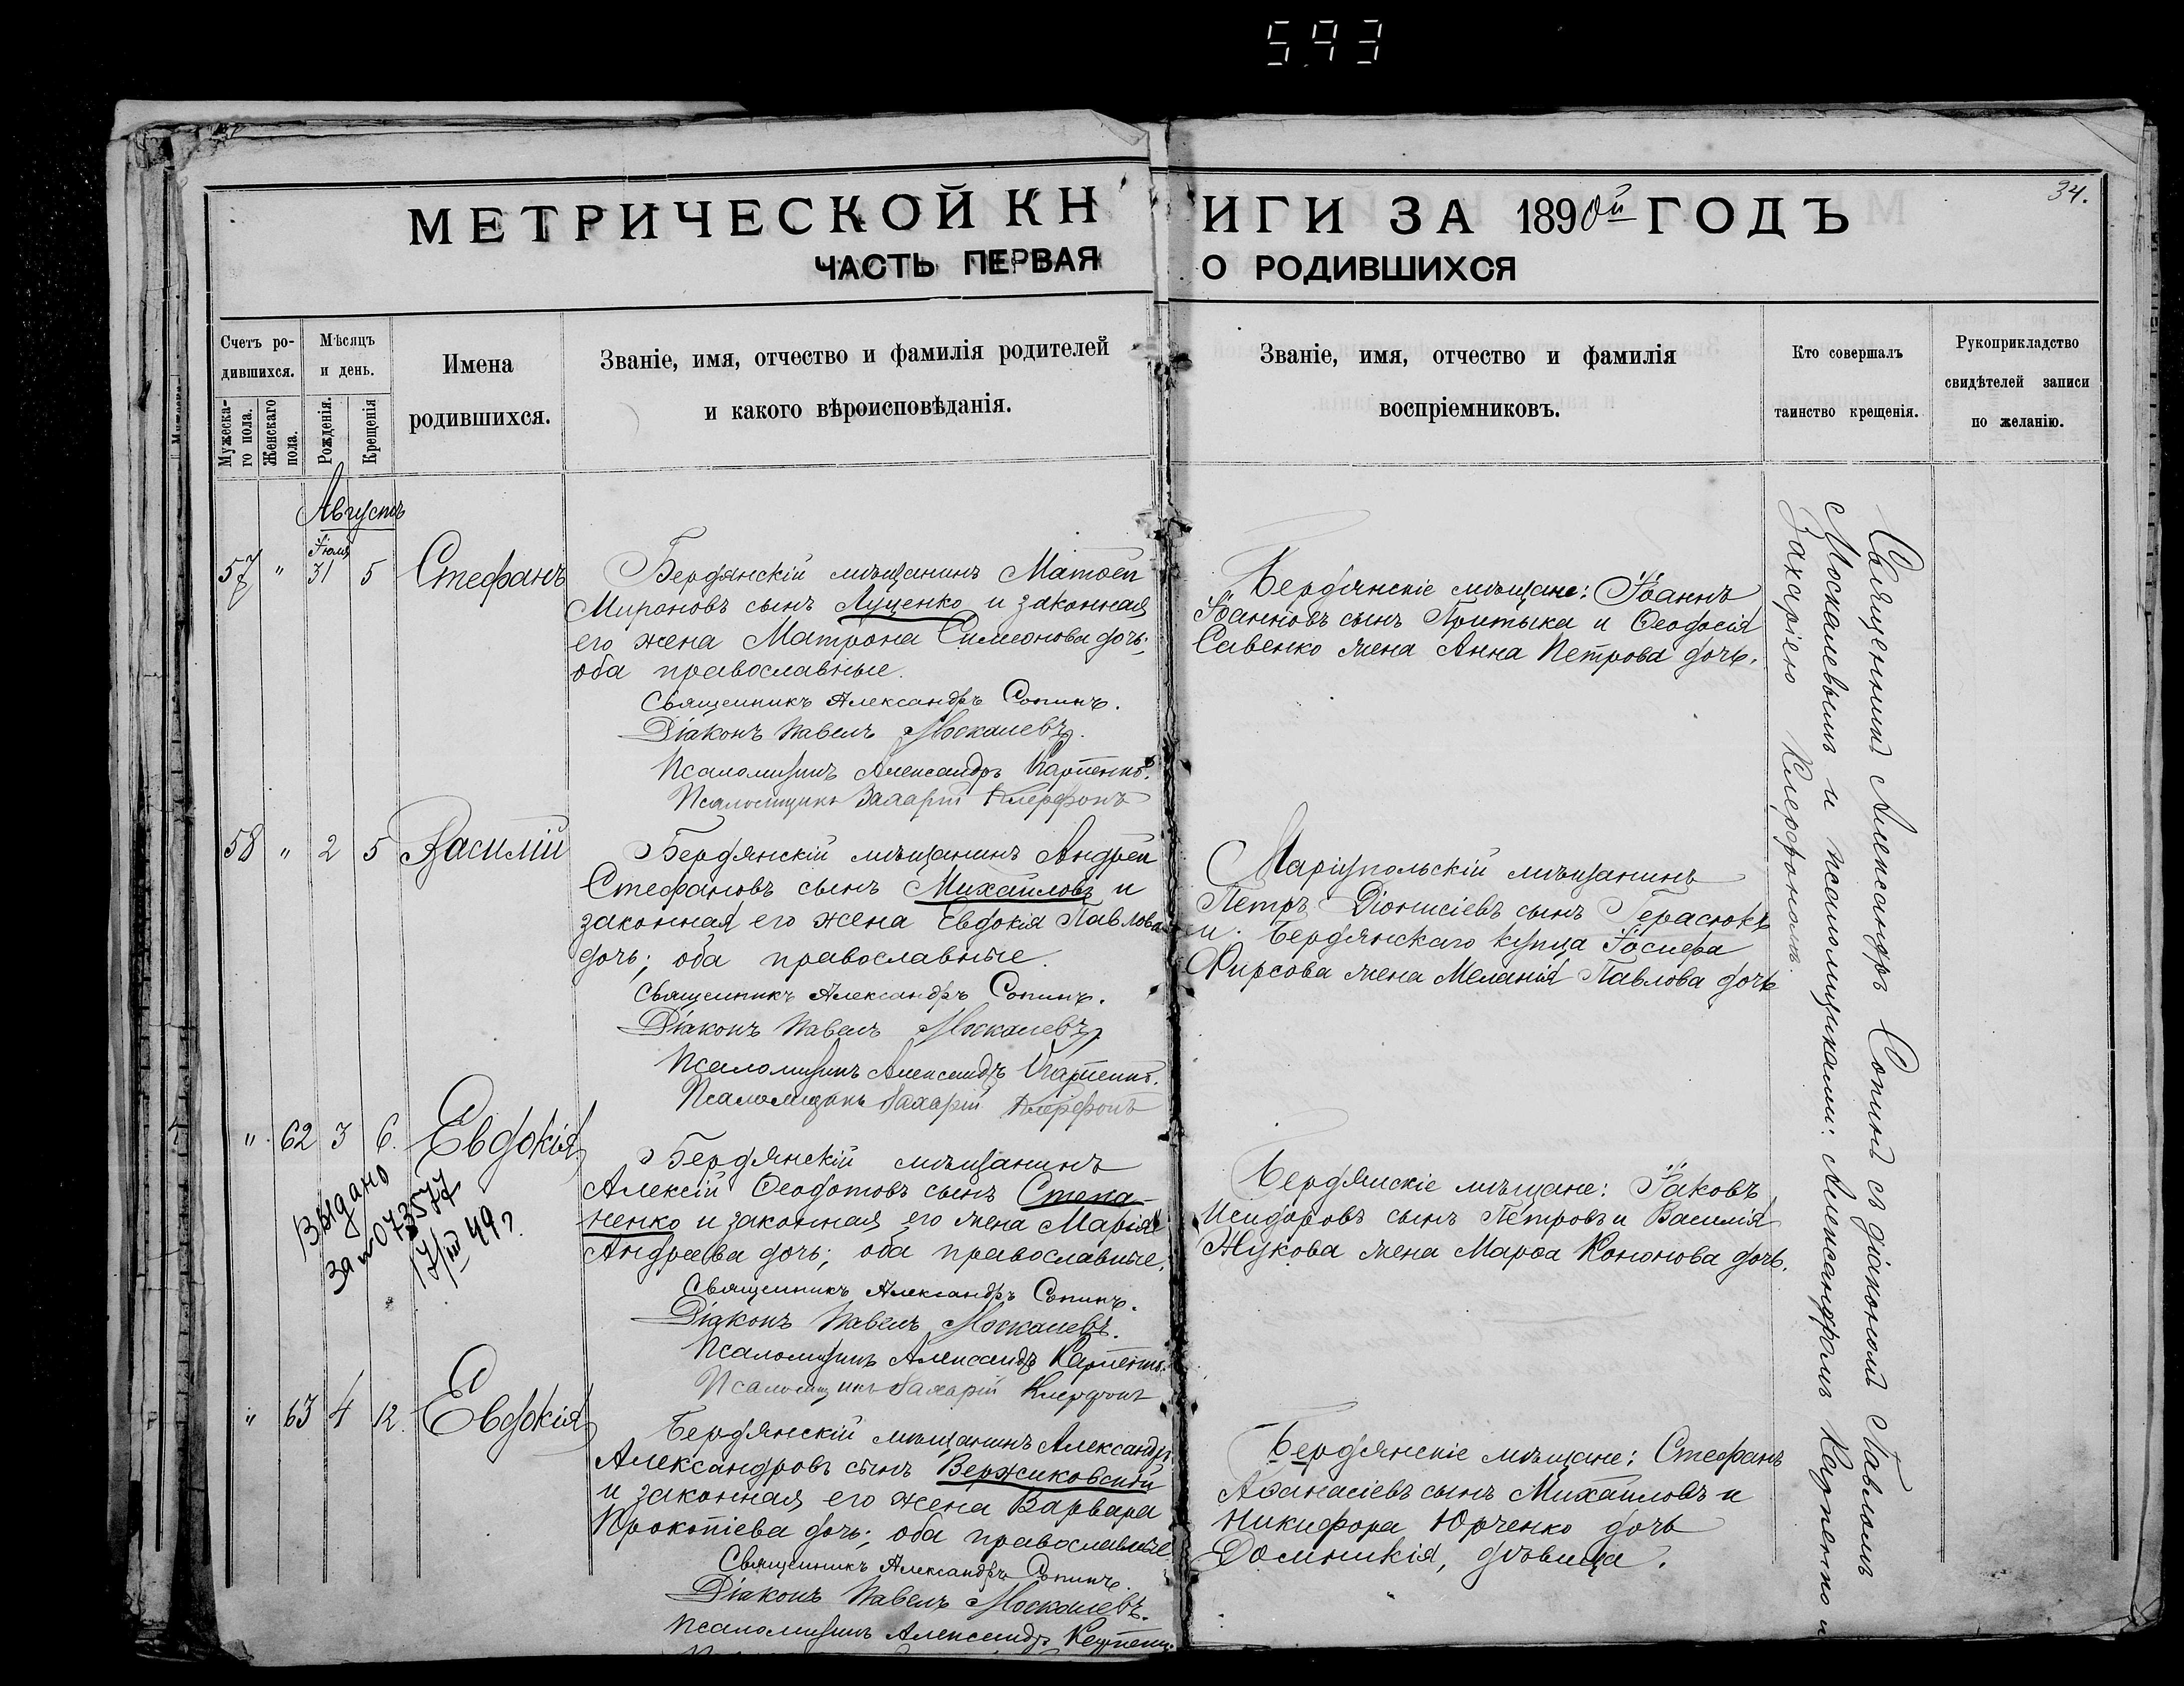 593
34.
МЕТРИЧЕСКОЙ КНИГИ ЗА 1890й ГОДЪ
ЧАСТЬ ПЕРВАЯ О РОДИВШИХСЯ
Счетъ ро-
дившихся.
Мужеска-
го пола.
Женскаго
пола.
Мѣсяцъ
и день.
Рожденія.
Крещенія
Имена
родившихся.
Званіе, имя, отчество и фамилія родителей
и какого вѣроисповѣданія.
Званіе, имя, отчество и фамилія
воспріемниковъ.
Кто совершалъ
таинство крещенія.
Рукоприкладство
свидѣтелей записи
по желанію.
Августъ
Іюля
57 " 31 5 Стефанъ
Бердянскій мѣщанинъ Матѳей
Мироновъ сынъ Луценко и законная
его жена Матрона Симеонова дочь;
оба православные.
Священникъ Александръ Сопинъ.
Діаконъ Павелъ Москалевъ.
Псаломщикъ Александръ Карпенко.
Псаломщикъ Захарій Клерфонъ
Бердянскіе мѣщане: Іоаннъ
Іоанновъ сынъ Притыка и Ѳеодосія
Савенко жена Анна Петрова дочь.
58 " 2 5 Василій
Бердянскій мѣщанинъ Андрей
Стефановъ сынъ Михайловъ и
законная его жена Евдокія Павлова
дочь; оба православные.
Священникъ Александръ Сопинъ.
Діаконъ Павелъ Москалевъ
Псаломщикъ Александръ Карпенко.
Псаломщикъ Захарій Клерфонъ
Маріупольскій мѣщанинъ
Петръ Діонисіевъ сынъ Герасюкъ
и Бердянскаго купца Іосифа
Фирсова жена Меланія Павлова дочь
" 62 3 6. Евдокія
Выдано
за № 073577
17/III 49 г
Бердянскій мѣщанинъ
Алексій Ѳеодотовъ сынъ Степа-
ненко и законная его жена Марія
Андреева дочь; оба православные.
Священникъ Александръ Сопинъ.
Діаконъ Павелъ Москалевъ.
Псаломщикъ Александръ Карпенко.
Псаломщикъ Захарій Клерфонъ
Бердянскіе мѣщане: Іаковъ
Исидоровъ сынъ Петровъ и Василія
Жукова жена Марѳа Кононова дочь.
" 63 4 12. Евдокія
Бердянскій мѣщанинъ Александръ
Александровъ сынъ Вержиковскій
и законная его жена Варвара
Прокопіева дочь; оба православные
Священникъ Александръ Сопинъ.
Діаконъ Павелъ Москалевъ.
Псаломщикъ Александръ Карпенко
Бердянскіе мѣщане: Стефанъ
Аѳанасіевъ сынъ Михайловъ и
Никифора Юрченко дочь
Домникія, дѣвица.
Священникъ Александръ Сопинъ съ діакономъ Павломъ
Москалевымъ и псаломщиками: Александромъ Карпенко и
Захаріею Клерфономъ.